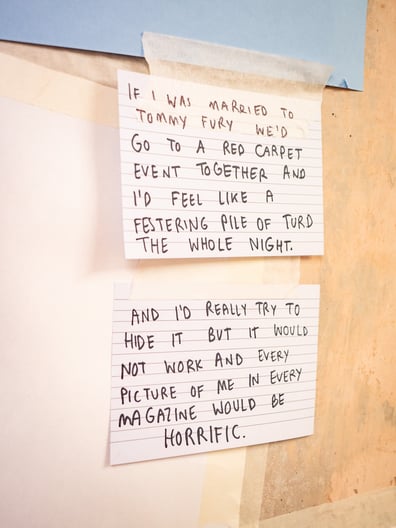 IF I WAS MARRIED TO
TOMMY FURY WE'D
GO TO A RED CARPET
EVENT TOGETHER AND
I'D FEEL LIKE A
FESTERING PILE OF TURD
THE WHOLE NIGHT.
AND I'D REALLY TRY TO
HIDE IT BUT IT WOULD
NOT WORK AND EVERY
PICTURE OF ME IN EVERY
MAGAZINE WOULD BE
HORRIFIC.